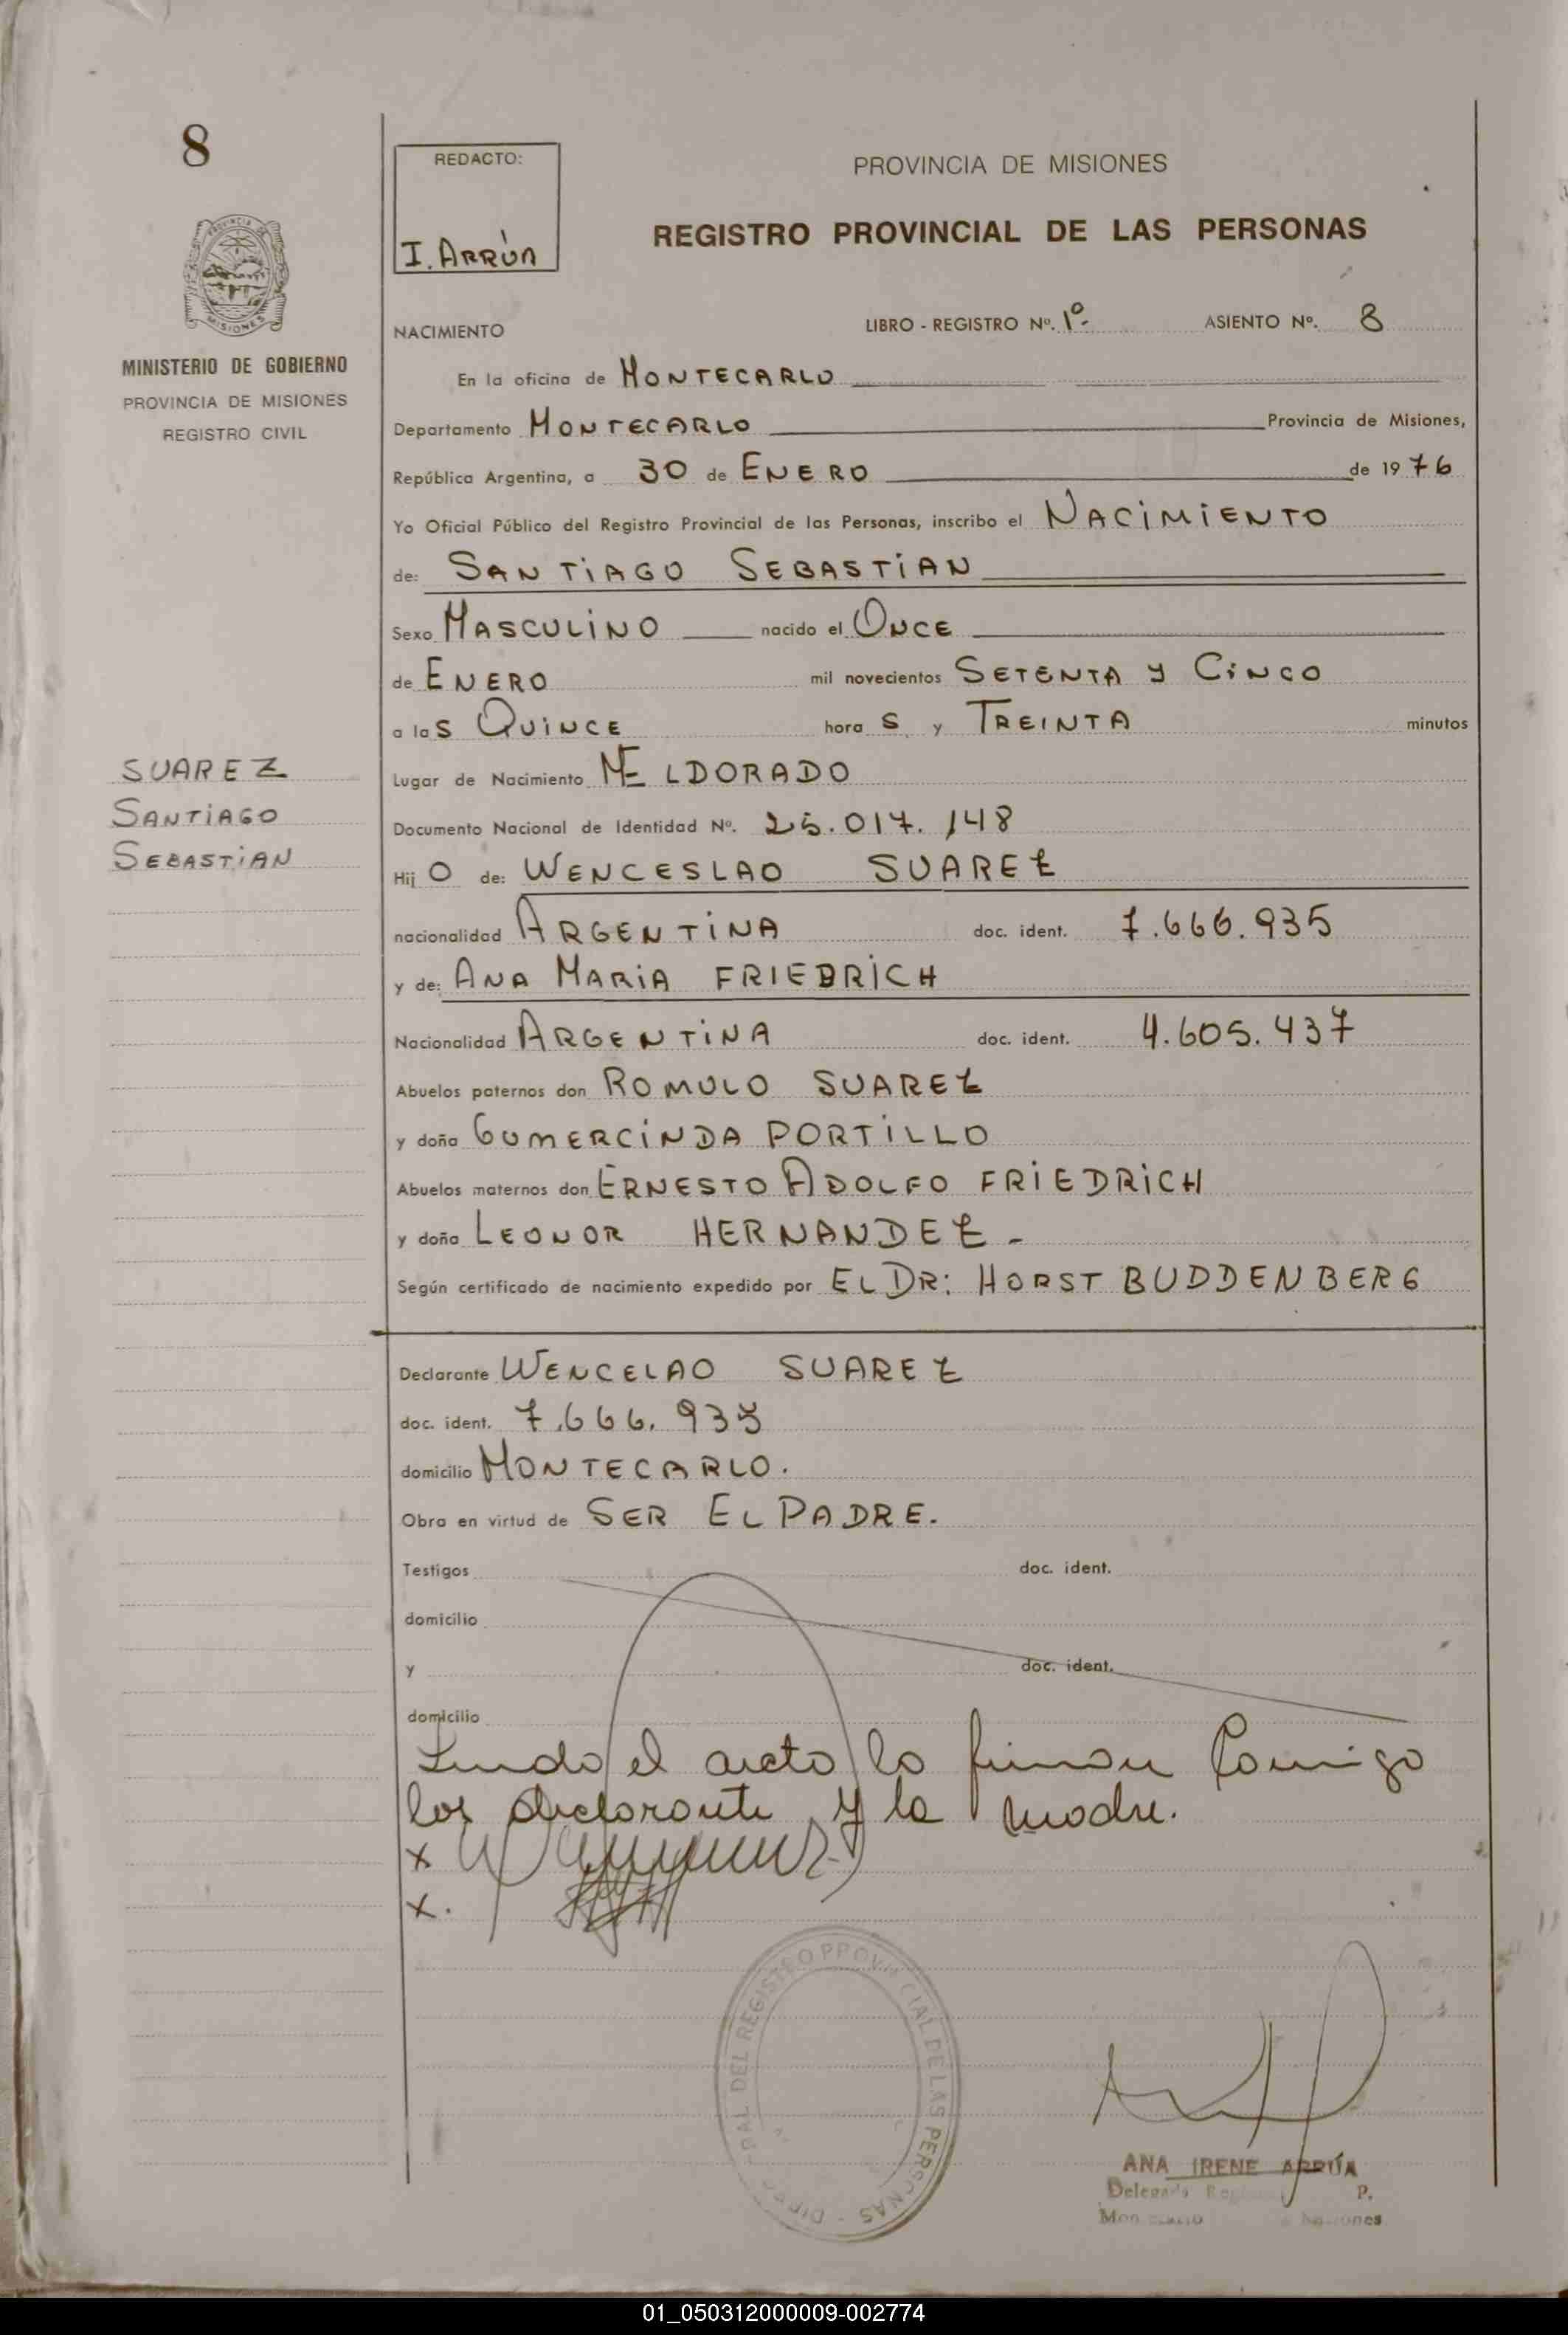 8
REDACTO:
I. ARRÚA
PROVINCIA DE MISIONES
REGISTRO PROVINCIAL DE LAS PERSONAS
PROVINCIA DE
MISIONES
MINISTERIO DE GOBIERNO
PROVINCIA DE MISIONES
REGISTRO CIVIL
NACIMIENTO
LIBRO - REGISTRO Nº. 1º- ASIENTO Nº. 8
En la oficina de MONTECARLO
Departamento MONTECARLO Provincia de Misiones,
República Argentina, a 30 de ENERO de 1976
Yo Oficial Público del Registro Provincial de las Personas, inscribo el NACIMIENTO
de: SANTIAGO SEBASTIAN
Sexo MASCULINO nacido el ONCE
de ENERO mil novecientos SETENTA Y CINCO
a las QUINCE horas y TREINTA minutos
SUAREZ
SANTIAGO
SEBASTIAN
Lugar de Nacimiento ELDORADO
Documento Nacional de Identidad Nº. 25.017.148
Hijo de: WENCESLAO SUAREZ
nacionalidad ARGENTINA doc. ident. 7.666.935
y de: ANA MARIA FRIEDRICH
Nacionalidad ARGENTINA doc. ident. 4.605.437
Abuelos paternos don ROMULO SUAREZ
y doña GUMERCINDA PORTILLO
Abuelos maternos don ERNESTO ADOLFO FRIEDRICH
y doña LEONOR HERNANDEZ -
Según certificado de nacimiento expedido por EL DR: HORST BUDDENBERG
Declarante WENCELAO SUAREZ
doc. ident. 7.666.935
domicilio MONTECARLO.
Obra en virtud de SER EL PADRE.
Testigos doc. ident.
domicilio
y doc. ident.
domicilio
Leido el acto lo firman Conmigo
los declarante y la madre.
x
x.
DEL REGISTRO PROVINCIAL DE LAS PERSONAS
ANA IRENE ARRÚA
Delegada P.
01_050312000009-002774